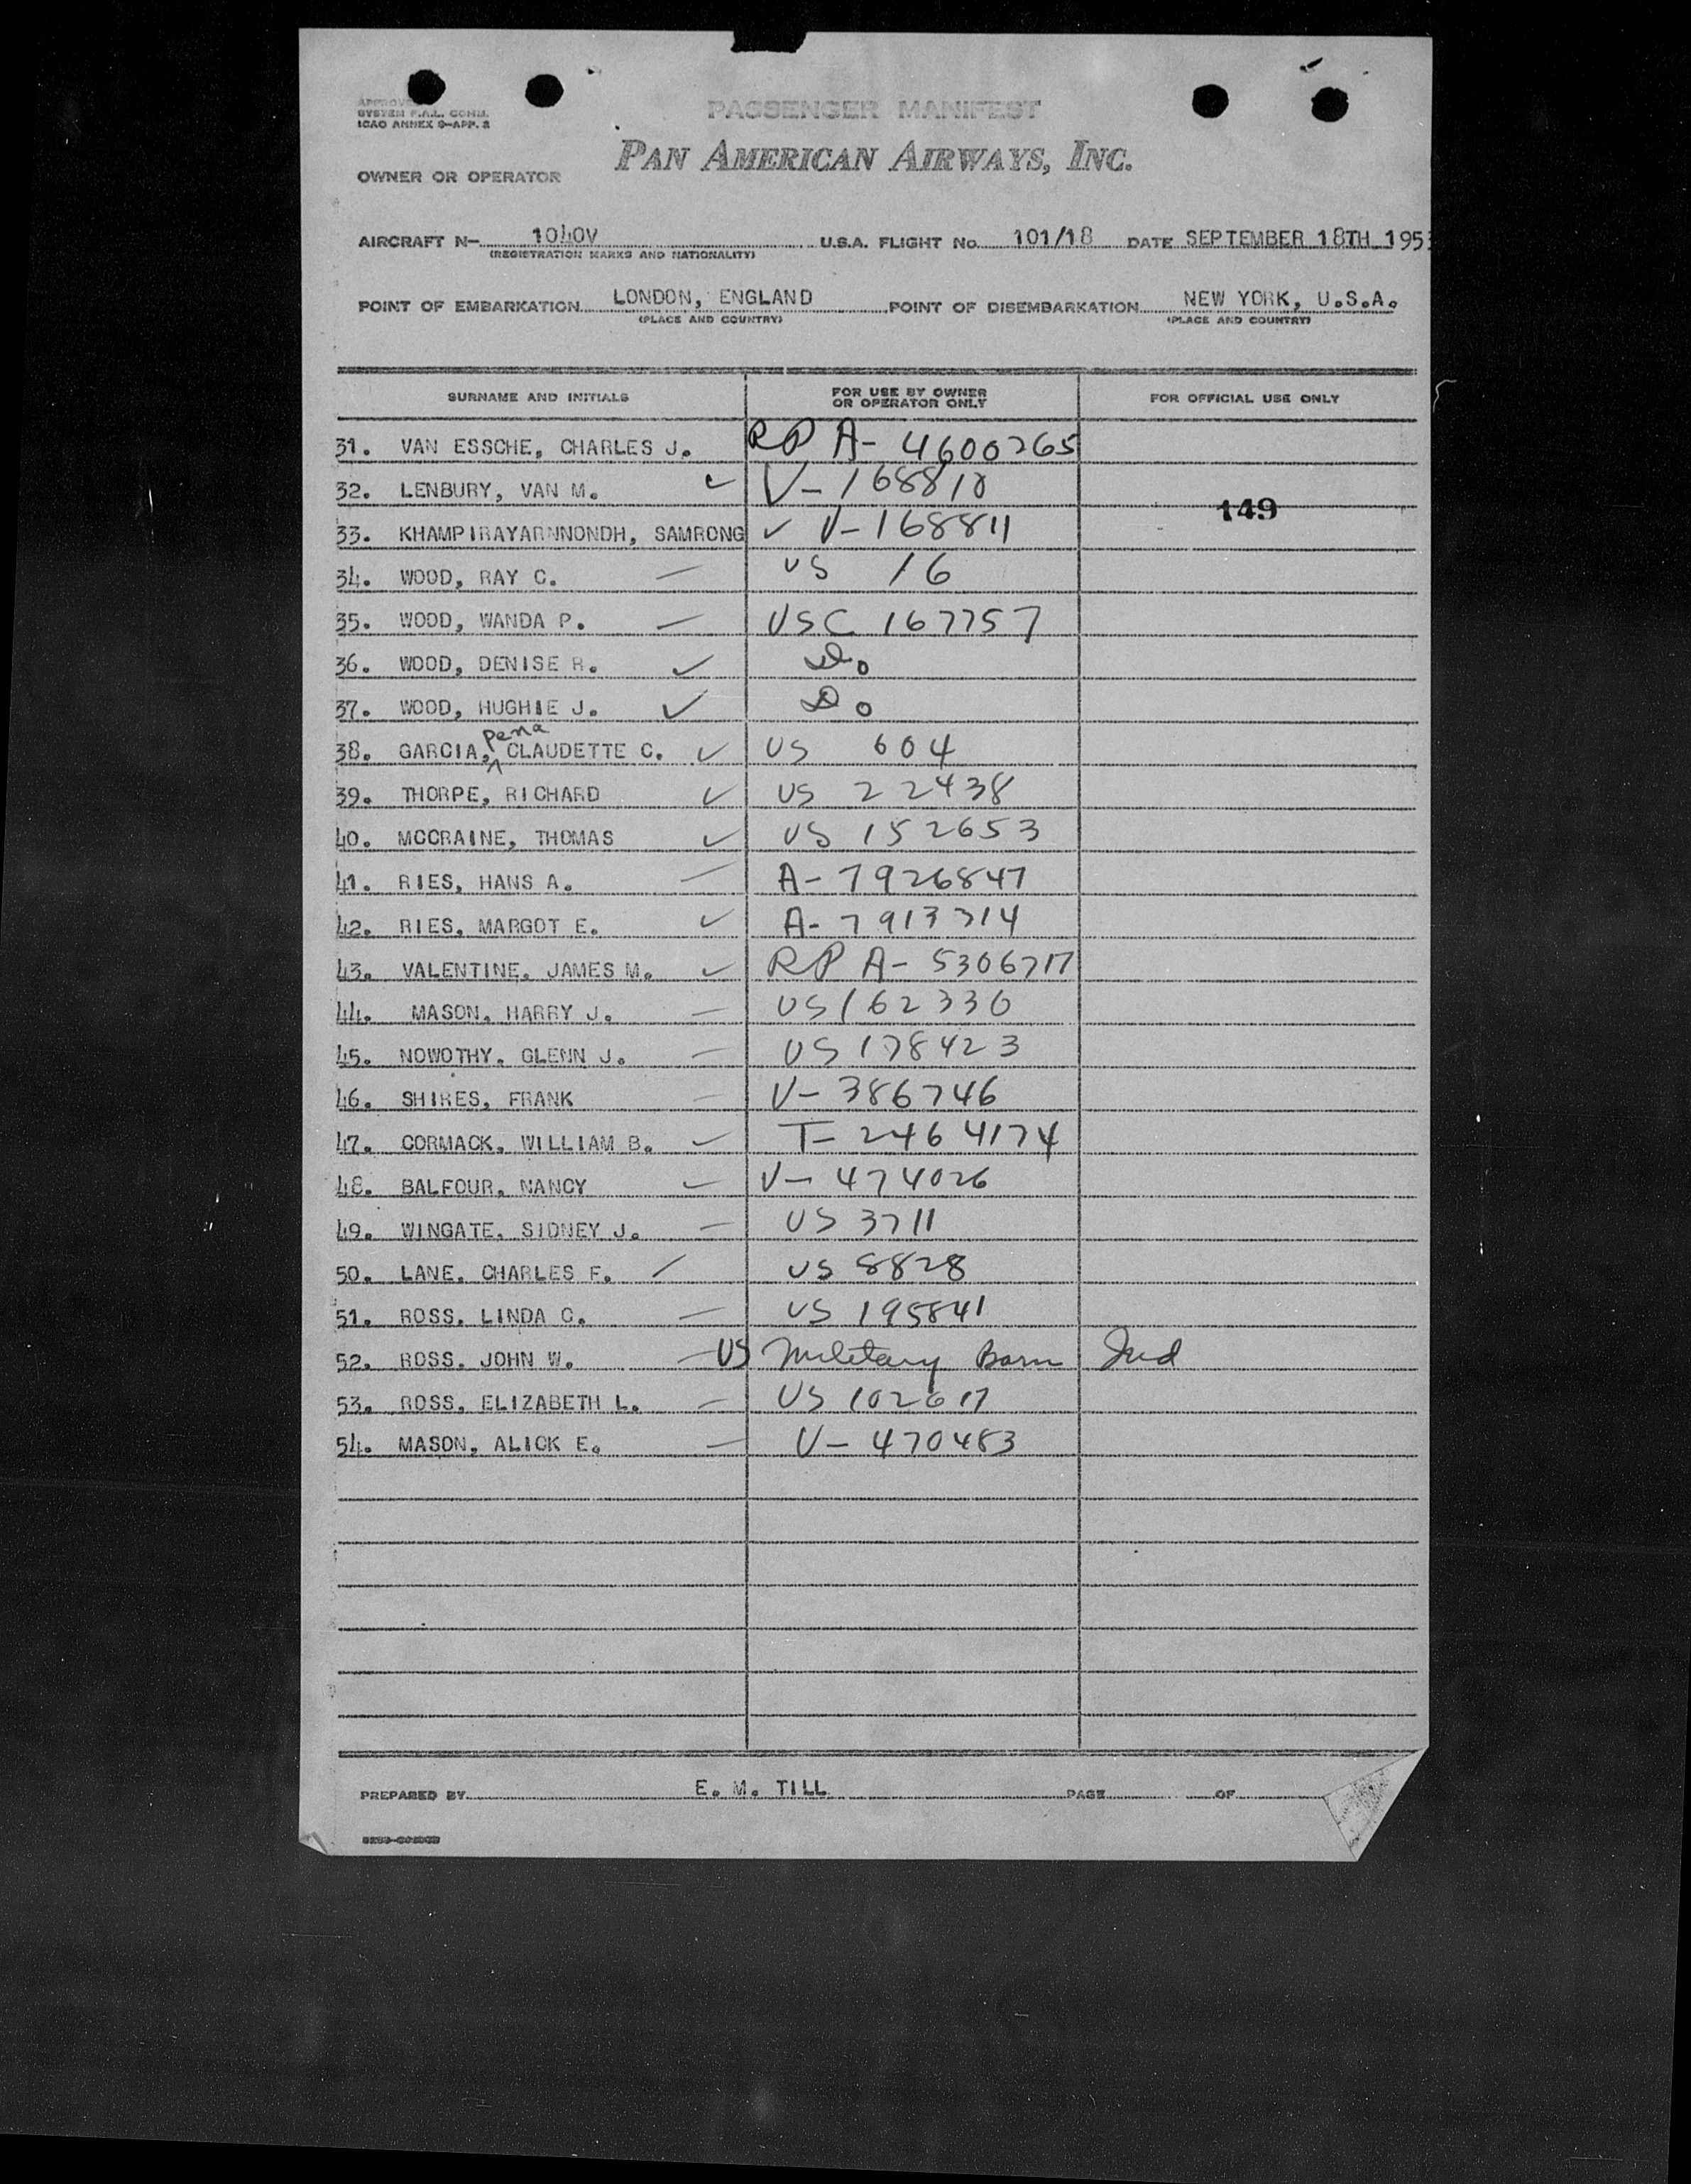 APPROVED
SYSTEM F.A.L. COMM.
ICAO ANNEX 9-APP. 2
PASSENGER MANIFEST
PAN AMERICAN AIRWAYS, INC.
OWNER OR OPERATOR
AIRCRAFT N- 1040V U.S.A. FLIGHT No. 101/18 DATE SEPTEMBER 18TH 1953
(REGISTRATION MARKS AND NATIONALITY)
POINT OF EMBARKATION LONDON, ENGLAND POINT OF DISEMBARKATION NEW YORK, U.S.A.
(PLACE AND COUNTRY) (PLACE AND COUNTRY)
SURNAME AND INITIALS FOR USE BY OWNER OR OPERATOR ONLY FOR OFFICIAL USE ONLY
31. VAN ESSCHE, CHARLES J. RP A- 4600265
32. LENBURY, VAN M. ✓ V-168810
149
33. KHAMPIRAYARNNONDH, SAMRONG ✓ V-168811
34. WOOD, RAY C. — US 16
35. WOOD, WANDA P. — USC 167757
36. WOOD, DENISE R. ✓ Do
37. WOOD, HUGHIE J. ✓ Do
38. GARCIA, Pena CLAUDETTE C. ✓ US 604
39. THORPE, RICHARD ✓ US 22438
40. MCCRAINE, THOMAS ✓ US 152653
41. RIES, HANS A. — A-7926847
42. RIES, MARGOT E. ✓ A-7913314
43. VALENTINE, JAMES M. ✓ RP A- 5306717
44. MASON, HARRY J. — US 162330
45. NOWOTHY, GLENN J. — US 178423
46. SHIRES, FRANK — V-386746
47. CORMACK, WILLIAM B. ✓ T-2464174
48. BALFOUR, NANCY ✓ V-474026
49. WINGATE, SIDNEY J. — US 3711
50. LANE, CHARLES F. / US 8828
51. ROSS, LINDA C. — US 195841
52. ROSS, JOHN W. — US Military Born
53. ROSS, ELIZABETH L. — US 102617
54. MASON, ALICK E. — V-470483
PREPARED BY E. M. TILL PAGE OF